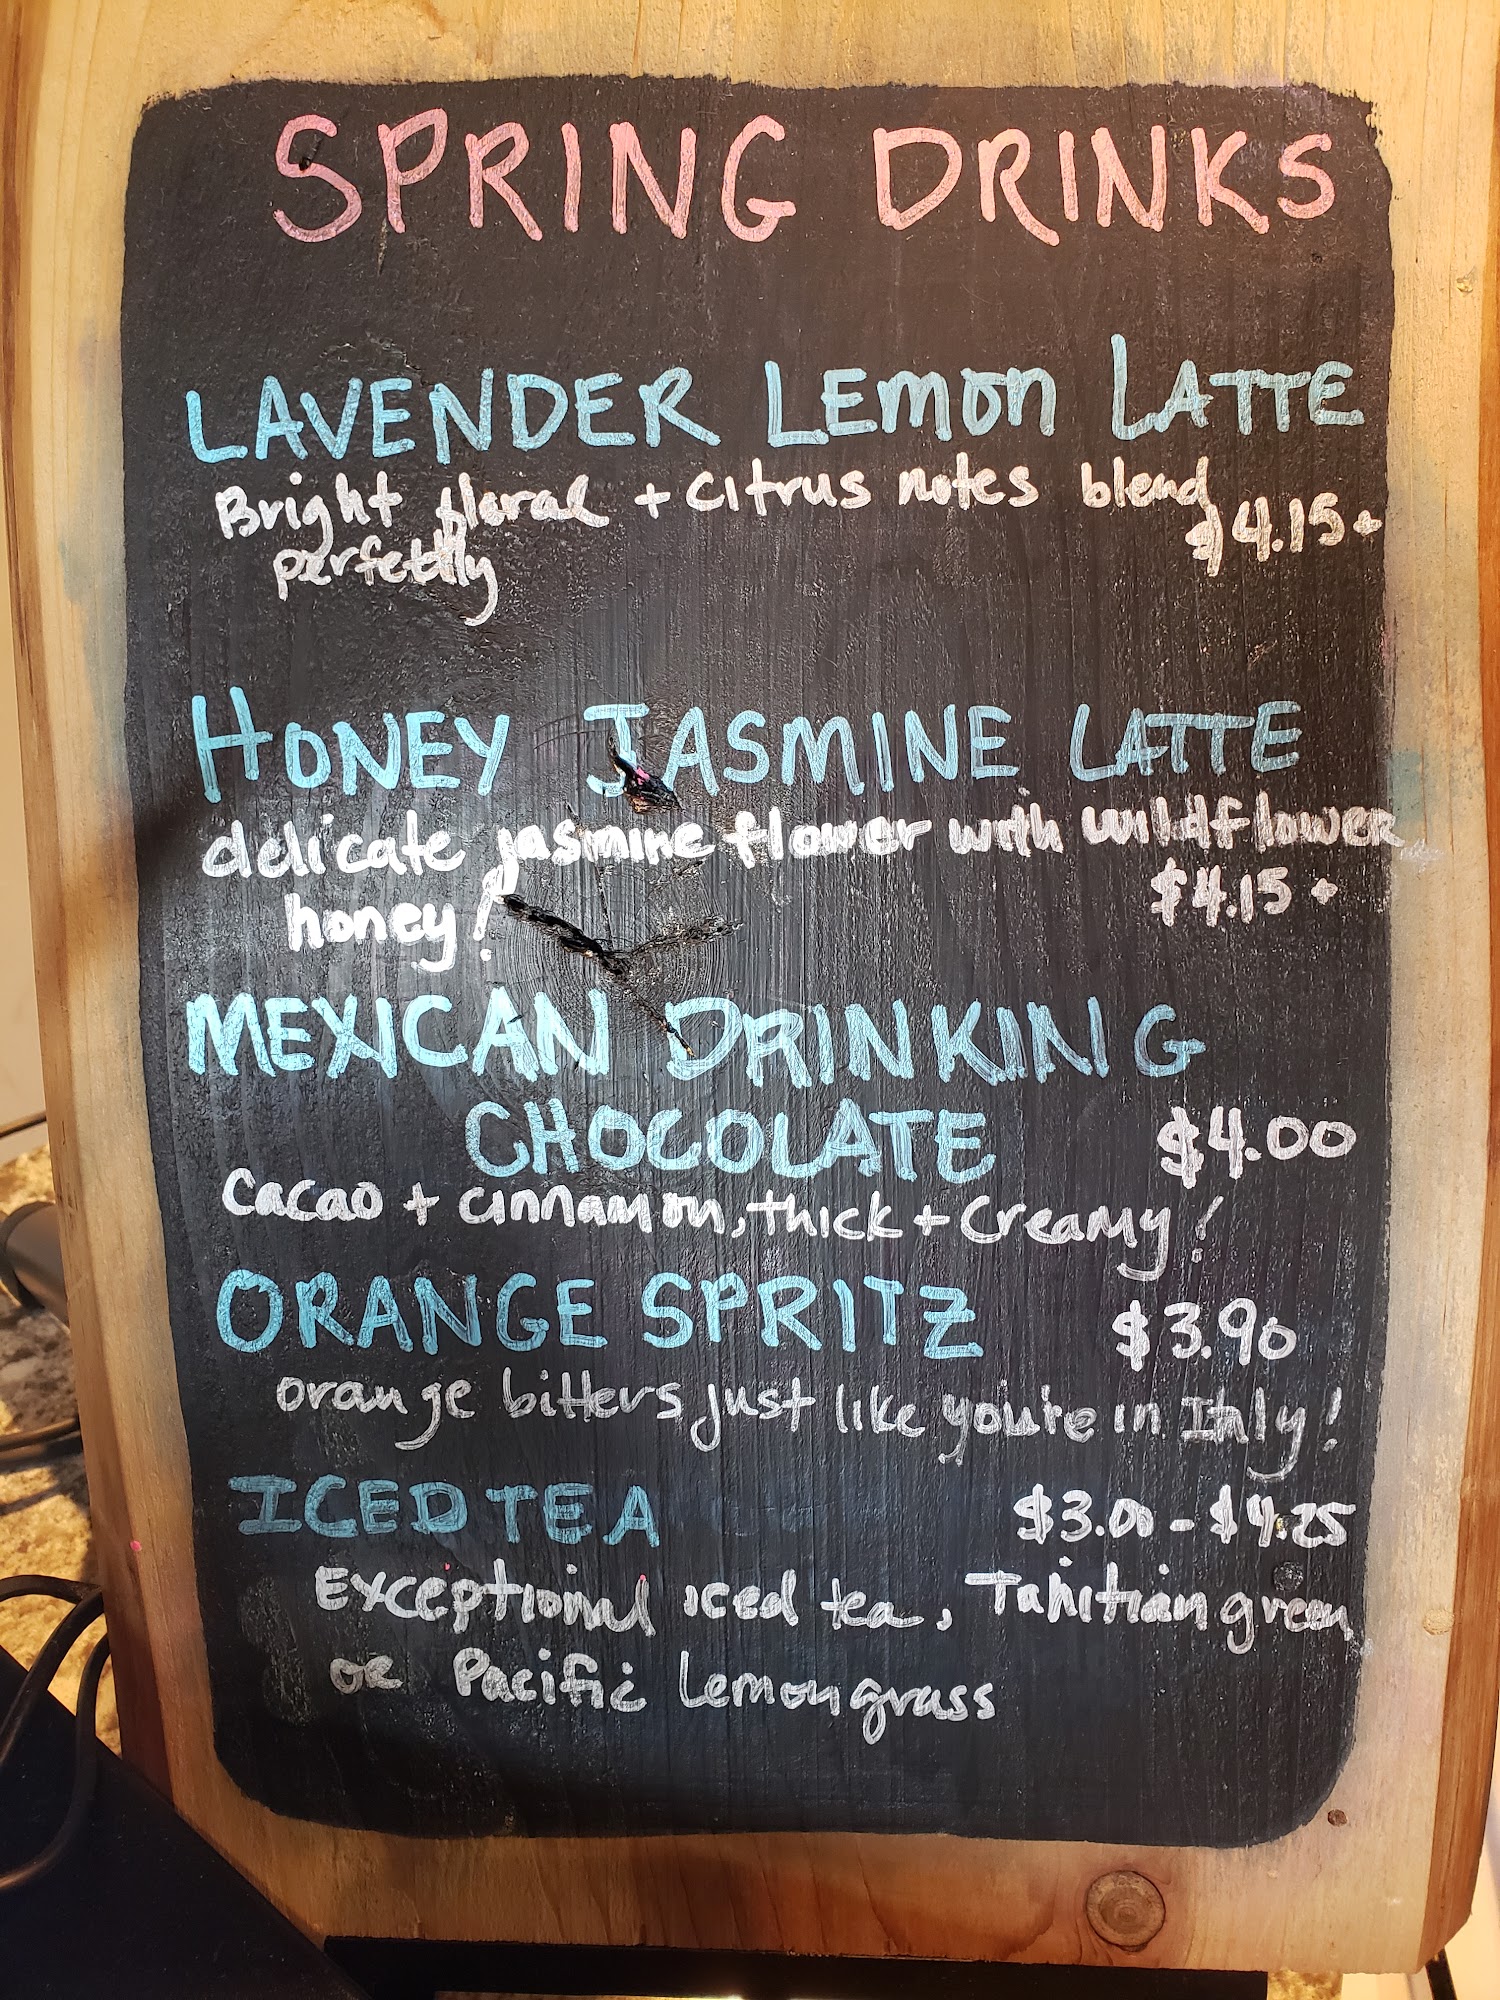 SPRING DRINKS
LAVENDER LEMON LATTE
Bright floral + citrus notes blend
perfectly $4.15+
HONEY JASMINE LATTE
delicate jasmine flower with wildflower
honey! $4.15+
MEXICAN DRINKING
CHOCOLATE $4.00
Cacao + cinnamon, thick + Creamy!
ORANGE SPRITZ $3.90
orange bitters just like you're in Italy!
ICED TEA $3.00 - $4.25
Exceptional iced tea, Tahitian green
or Pacific Lemongrass